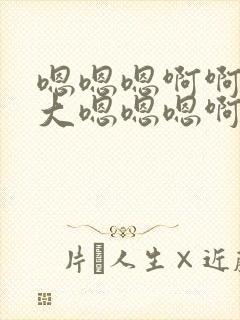 嗯嗯嗯啊啊
大嗯嗯嗯啊
片人生×近